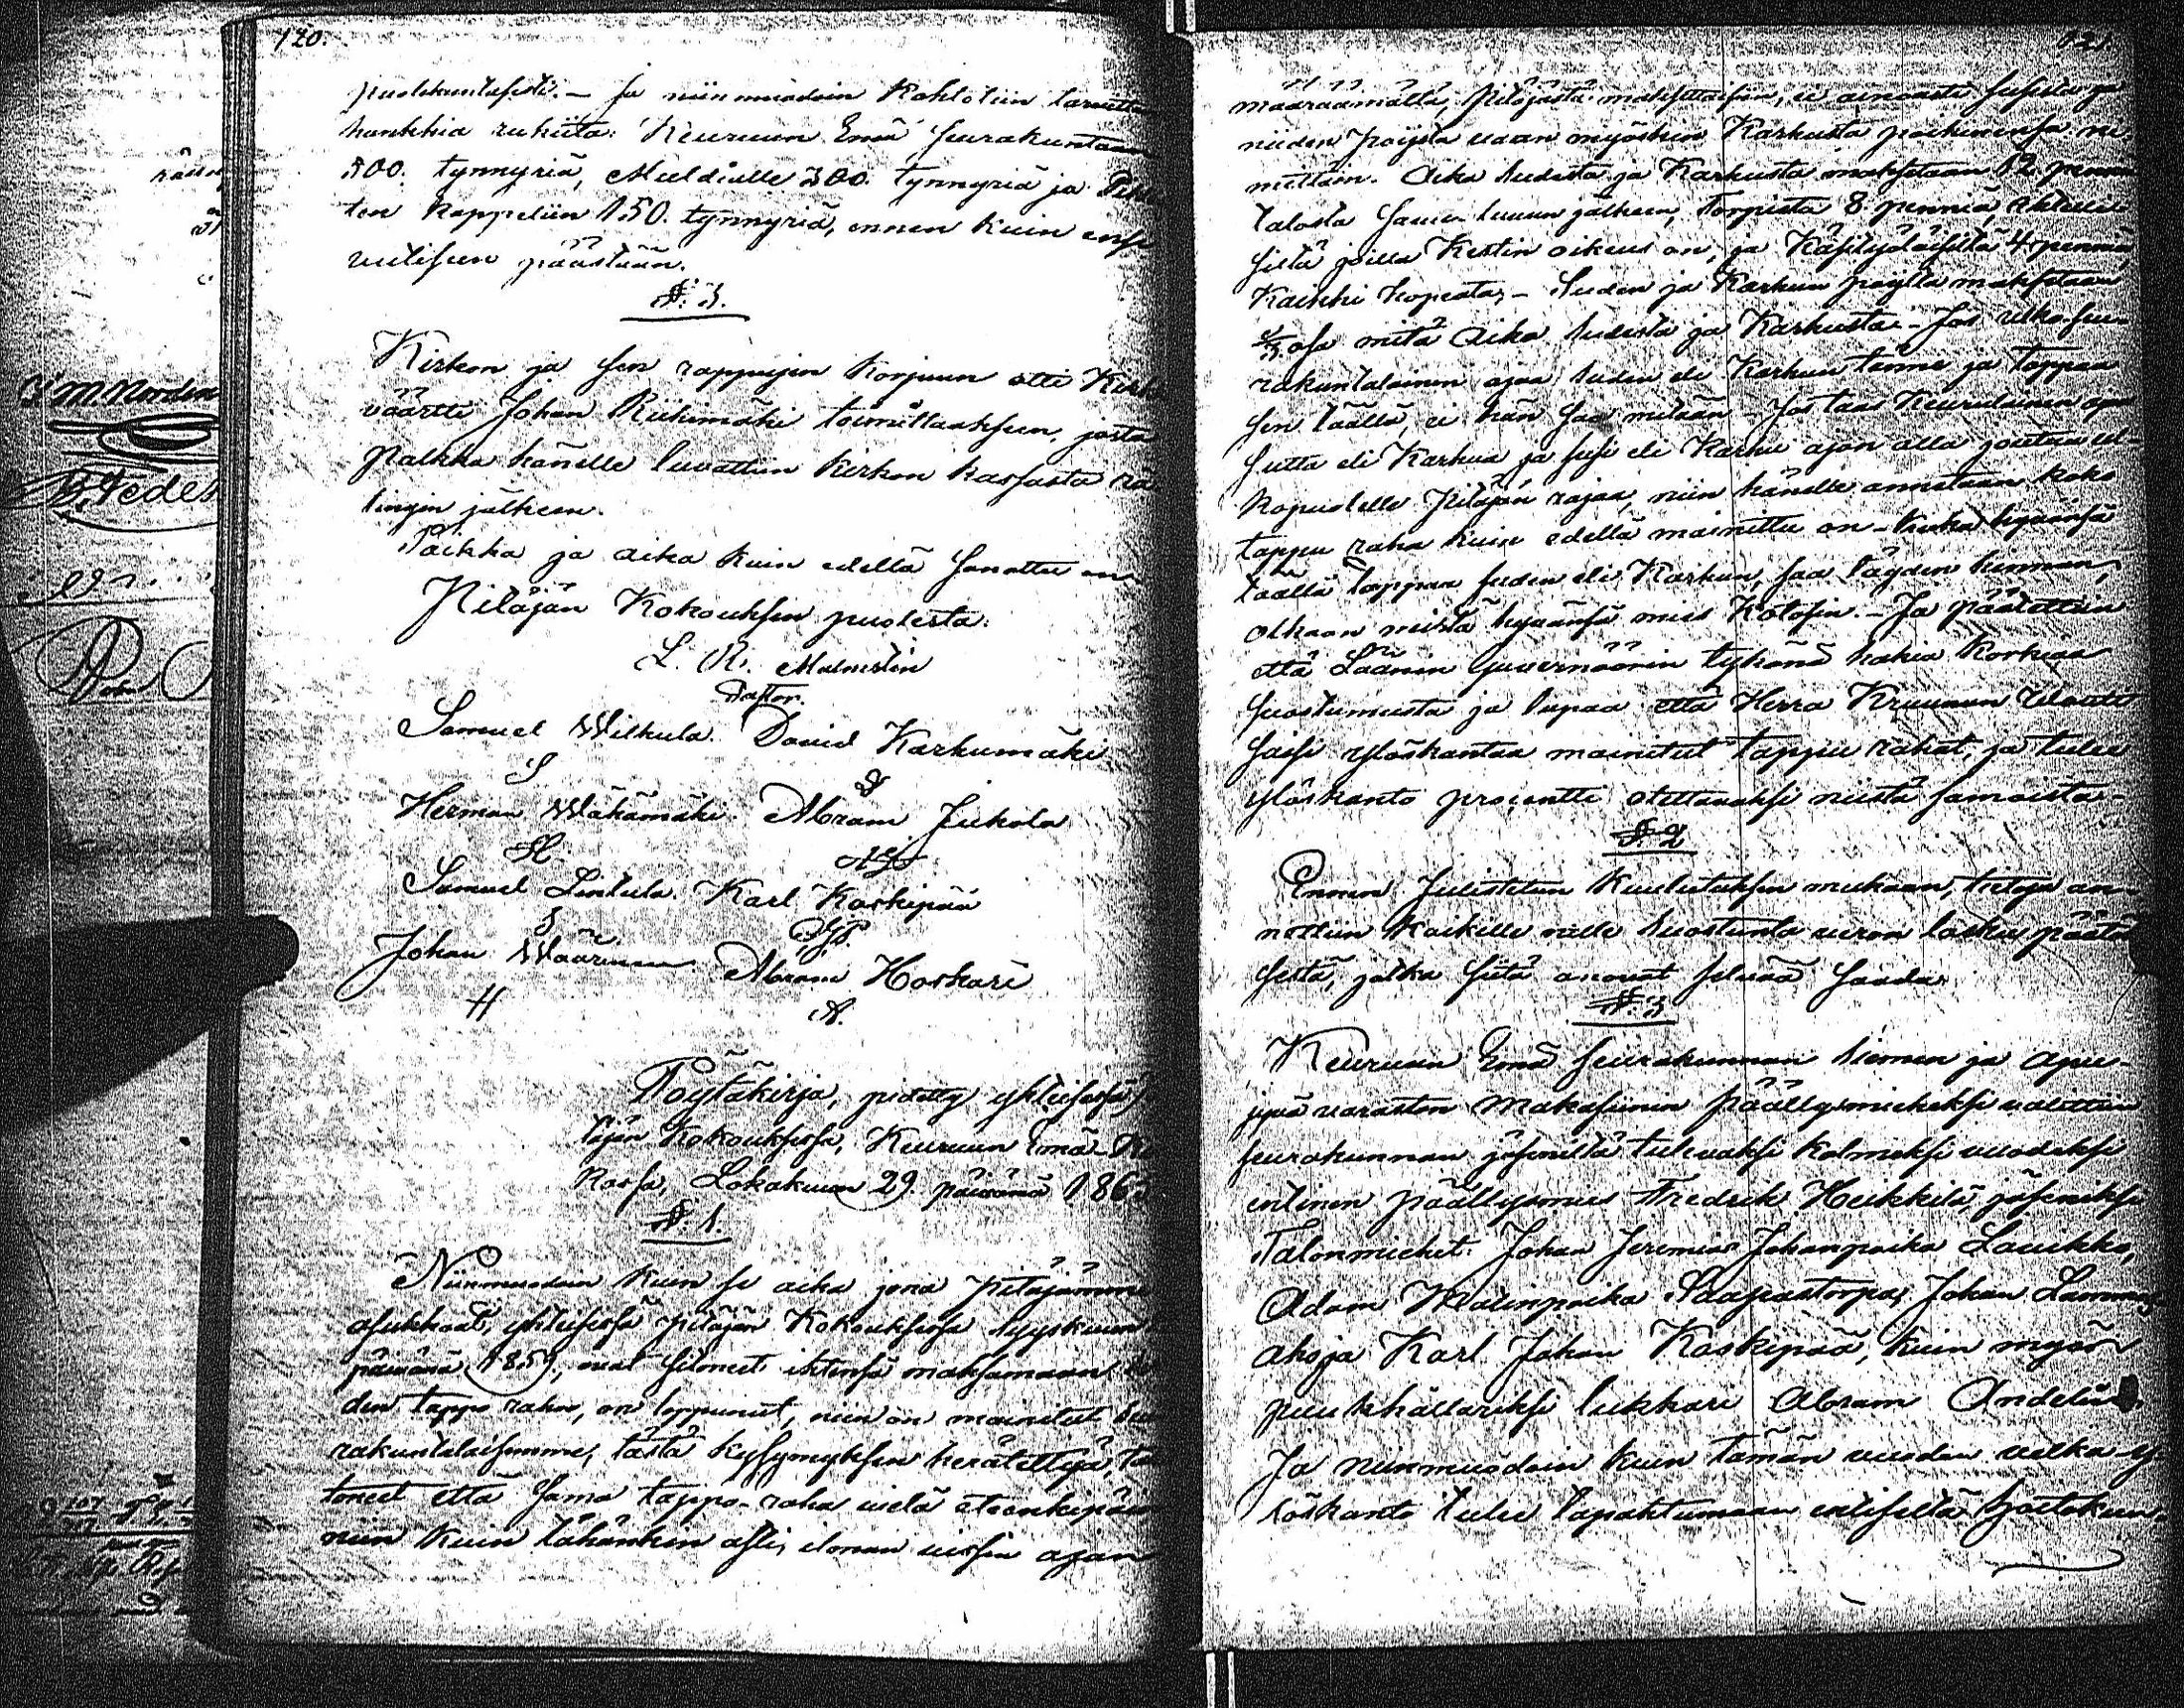 120.
puolikuntaisesti. – Ja niinmuodoin Kohtoliin
hankkia rukiita: Keuruun Emä Seurakuntaan
500. tynnyriä, Multialle 300. tynnyriä ja
ten kappeliin 150. tynnyriä, ennen kuin
päästään.
§. 3.
Kirkon ja sen rappujen korjuun otti
väärtti Johan Riihimäki toimittaaksen, josta
palkka hänelle luvattiin kirkon kassasta
tingin jälkeen.
Paikka ja aika kuin edellä sanottu on
Pitäjän Kokouksen puolesta:
L. R. Malmstén
Pastor.
Samuel Wilkula. David Karkumäki
S
Herman Wähämäki. Abram Jukola
H.
Samuel Lintula. Karl Koskipää
S
Johan Abram Hoskari
H A.
Pöytäkirja, pidetty yhteisessä
täjän Kokouksessa, Keuruun Emä
kossa, Lokakuun 29. päivänä 186
§. 1.
Niinmuodoin kuin se aika jona pitäjämme
asukkaat, yhteisessä pitäjän Kokouksessa Syyskuun
päivänä 1859, ovat sitoneet ihtensä maksamaan
den tappo raha, on loppunut, niin on mainitut
rakuntalaisemme, tästä kysymyksen herätettyä,
toneet että sama tappo-raha vielä eteenkipäin
niin kuin tähänkin asti, ilman vissin ajan
121
määräämättä, pitäjästä maksettaisiin, ei ainoasta susista ja
niiden poijista vaan myöskin Karhusta poikinensa ni-
mittäin. Aika Sudesta ja Karhusta maksetaan 12 penniä
talosta savu luvun jälkeen, torpista 8 penniä,
siltä joilla Kestin oikeus on, ja Käsityöläisiltä 4 penniä
Kaikki hopeata; – Suden ja Karhun poijilta maksetaan
osa mitä Aika Sudesta ja Karhusta. – Jos ulko seu-
rakuntalainen ajaa suden eli Karhun tänne ja tappaa
sen täällä, ei hän saa mitään – Jos taas Keuruulainen ajaa
sutta eli Karhua ja susi eli Karhu ajon alla joutuu ul-
kopuolelle pitäjän rajaa, niin hänelle annetaan koko
tappu raha kuin edellä mainittu on – Kuka hyvänsä
täällä tappaa suden eli Karhun, saa täyden hinnan,
olkaan mistä hyvänsä mies Kotosin. – Ja päätettiin
että Läänin Guvernöörin tykönä hakia korkiaa
suostumusta ja lupaa että Herra Kruunun Wouti
saisi ylöskantaa mainitut tappu rahat, ja tulee
ylöskanto prosentti otettavaksi niistä samoista. –
§. 2
Ennen Julistetun Kuulutuksen mukaan, tietoja an-
nettiin Kaikille niille Suostunto veron lasku päätö
sestä, jotka siitä anovat selvää saada.
§. 3
Keuruun Emä seurakunnan siemen ja apu-
jyvä varaston Makasiinin päällysmieheksi valittiin
seurakunnan jäseniltä tulevaksi kolmeksi vuodeksi
entinen päällysmies Fredrik Heikkilä, jäseniksi
Talonmiehet: Johan Jeremias Johanpoika Laukka,
Adam Matinpoika Saapastorpa, Johan
aho ja Karl Johan Koskipää, kuin myös
puukhållariksi lukkari Abram Andelin.
Ja niinmuodoin kuin tämän vuoden velka y-
löskanto tulee tapahtumaan entiseltä